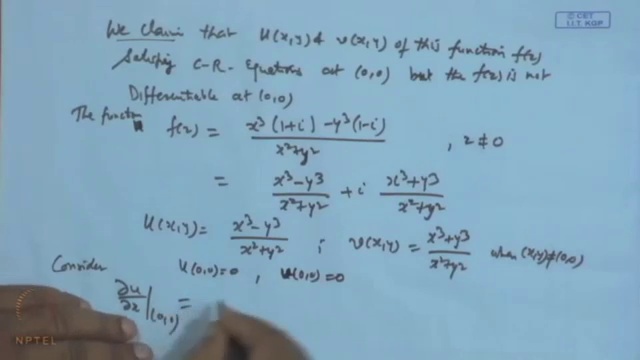 © CET
I.I.T. KGP
We claim that u(x,y) & v(x,y) of this function f(z)
Satisfy C-R- Equations at (0,0) but the f(z) is not
Differentiable at (0,0)
The function f(z) = x³(1+i) - y³(1-i) / x²+y² , z ≠ 0
= x³-y³ / x²+y² + i x³+y³ / x²+y²
u(x,y) = x³-y³ / x²+y² ; v(x,y) = x³+y³ / x²+y² when (x,y)≠(0,0)
Consider u(0,0)=0 , v(0,0)=0
∂u/∂x |(0,0) =
NPTEL